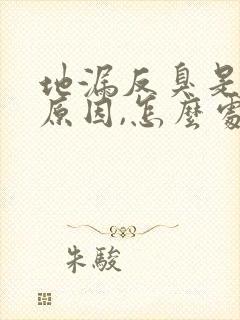 地漏反臭是
原因,怎麼處
朱駿